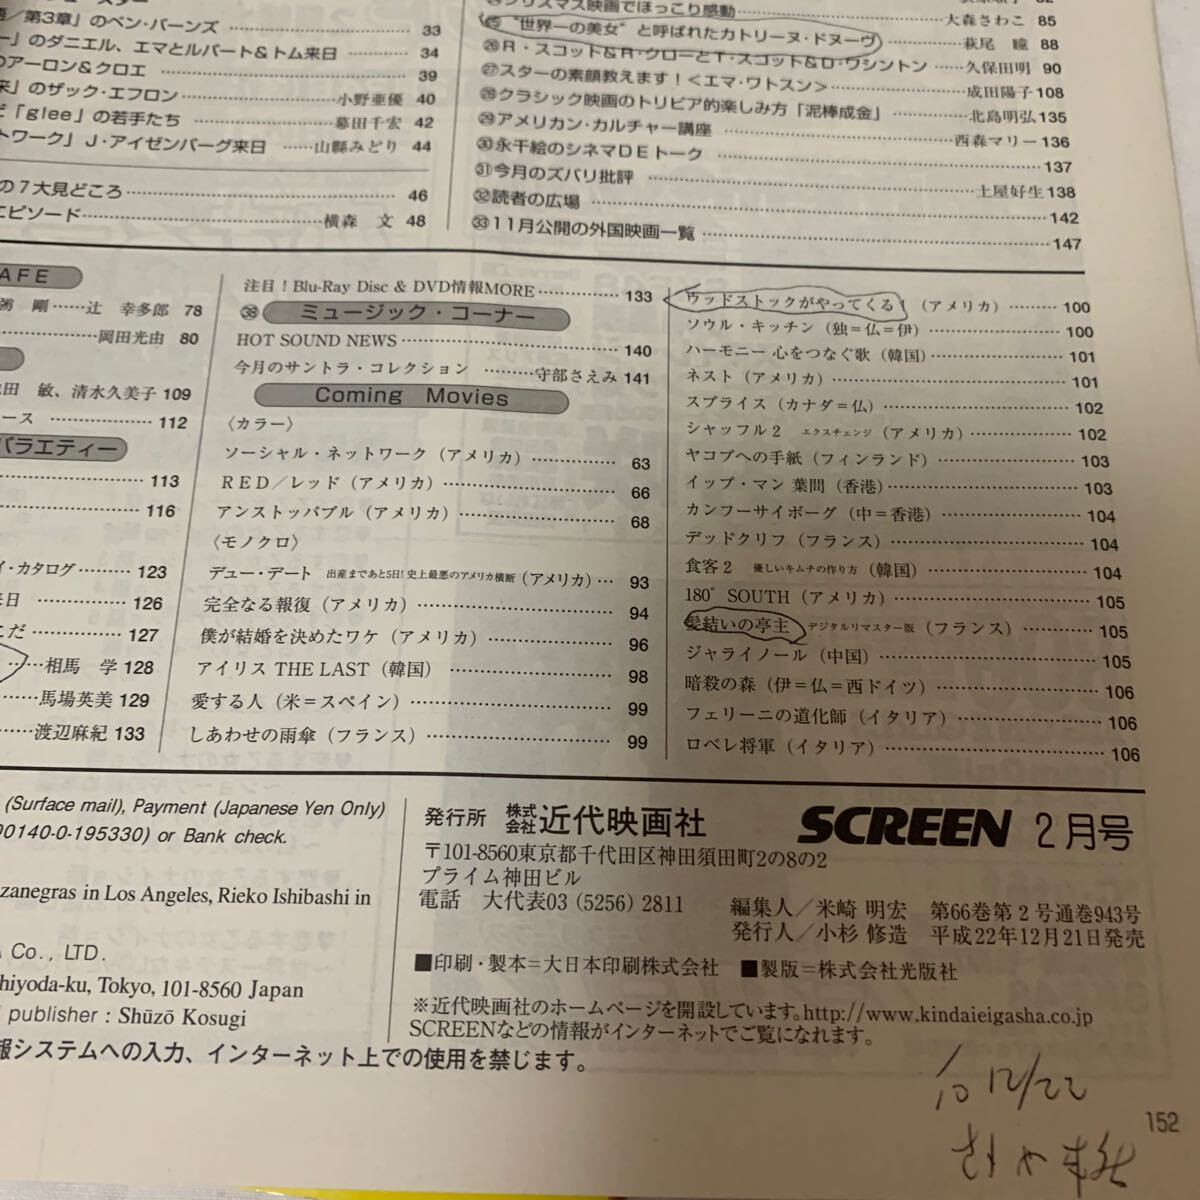 語/第3章」のベン・バーンズ……33
ー」のダニエル、エマとルパート＆トム来日……34
のアーロン＆クロエ……39
来」のザック・エフロン……小野亜優 40
ど「glee」の若手たち……幕田千宏 42
トワーク」J・アイゼンバーグ来日……山縣みどり 44
の7大見どころ……46
エピソード……横森 文 48
クリスマス映画でほっこり感動……大森さわこ 85
㉕“世界一の美女”と呼ばれたカトリーヌ・ドヌーヴ……萩尾 瞳 88
㉖R・スコット＆R・クローとT・スコット＆D・ワシントン……久保田明 90
㉗スターの素顔教えます！＜エマ・ワトスン＞……成田陽子108
㉘クラシック映画のトリビア的楽しみ方「泥棒成金」……北島明弘135
㉙アメリカン・カルチャー講座……西森マリー136
㉚永千絵のシネマDEトーク……137
㉛今月のズバリ批評……土屋好生138
㉜読者の広場……142
㉝11月公開の外国映画一覧……147
AFE
剛……辻 幸多郎 78
……岡田光由 80
田 敏、清水久美子109
ース……112
バラエティー
……113
……116
イ・カタログ……123
来日……126
こだ……127
……相馬 学128
……馬場英美129
……渡辺麻紀133
注目！Blu-Ray Disc & DVD情報MORE……133
㊳ ミュージック・コーナー
HOT SOUND NEWS……140
今月のサントラ・コレクション……守部さえみ141
Coming Movies
〈カラー〉
ソーシャル・ネットワーク（アメリカ）……63
RED／レッド（アメリカ）……66
アンストッパブル（アメリカ）……68
〈モノクロ〉
デュー・デート 出産まであと5日！史上最悪のアメリカ横断（アメリカ）…93
完全なる報復（アメリカ）……94
僕が結婚を決めたワケ（アメリカ）……96
アイリス THE LAST（韓国）……98
愛する人（米＝スペイン）……99
しあわせの雨傘（フランス）……99
ウッドストックがやってくる！（アメリカ）……100
ソウル・キッチン（独＝仏＝伊）……100
ハーモニー 心をつなぐ歌（韓国）……101
ネスト（アメリカ）……101
スプライス（カナダ＝仏）……102
シャッフル2 エクスチェンジ（アメリカ）……102
ヤコブへの手紙（フィンランド）……103
イップ・マン 葉問（香港）……103
カンフーサイボーグ（中＝香港）……104
デッドクリフ（フランス）……104
食客2 優しいキムチの作り方（韓国）……104
180° SOUTH（アメリカ）……105
髪結いの亭主 デジタルリマスター版（フランス）……105
ジャライノール（中国）……105
暗殺の森（伊＝仏＝西ドイツ）……106
フェリーニの道化師（イタリア）……106
ロベレ将軍（イタリア）……106
(Surface mail), Payment (Japanese Yen Only)
00140-0-195330) or Bank check.
zanegras in Los Angeles, Rieko Ishibashi in
Co., LTD.
hiyoda-ku, Tokyo, 101-8560 Japan
publisher : Shūzō Kosugi
報システムへの入力、インターネット上での使用を禁じます。
発行所 株式会社 近代映画社
SCREEN 2月号
〒101-8560東京都千代田区神田須田町2の8の2
プライム神田ビル
電話 大代表03（5256）2811
編集人／米崎 明宏 第66巻第2号通巻943号
発行人／小杉 修造 平成22年12月21日発売
■印刷・製本＝大日本印刷株式会社 ■製版＝株式会社光版社
※近代映画社のホームページを開設しています。http://www.kindaieigasha.co.jp
SCREENなどの情報がインターネットでご覧になれます。
10 12/22
152